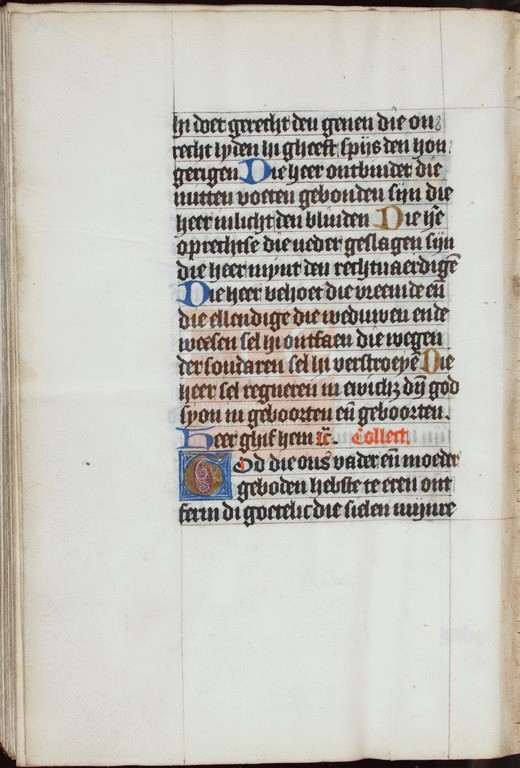 hi doet gerecht den genen die on
recht lyden hi gheeft spijs den hon
gerigen Die heer ontbindet die
mitten voeten gebonden sijn die
heer inlicht den blinden Die h̄e
oprechtse die neder geslagen sijn
die heer mynt den rechtuaerdigē
Die heer behoet die vreemde eñ
die ellendige die weduwen ende
weesen sel hi ontfaen die wegen
der sondaren sel hi verstroeyē Die
heer sel regneren in ewich; dyn god
syon in geboorten eñ geboorten.
Heer ghif hem rc̄. Collect.
God die ons vader eñ moeder
geboden hebste te eren ont
ferm di goetelic die sielen mijnre